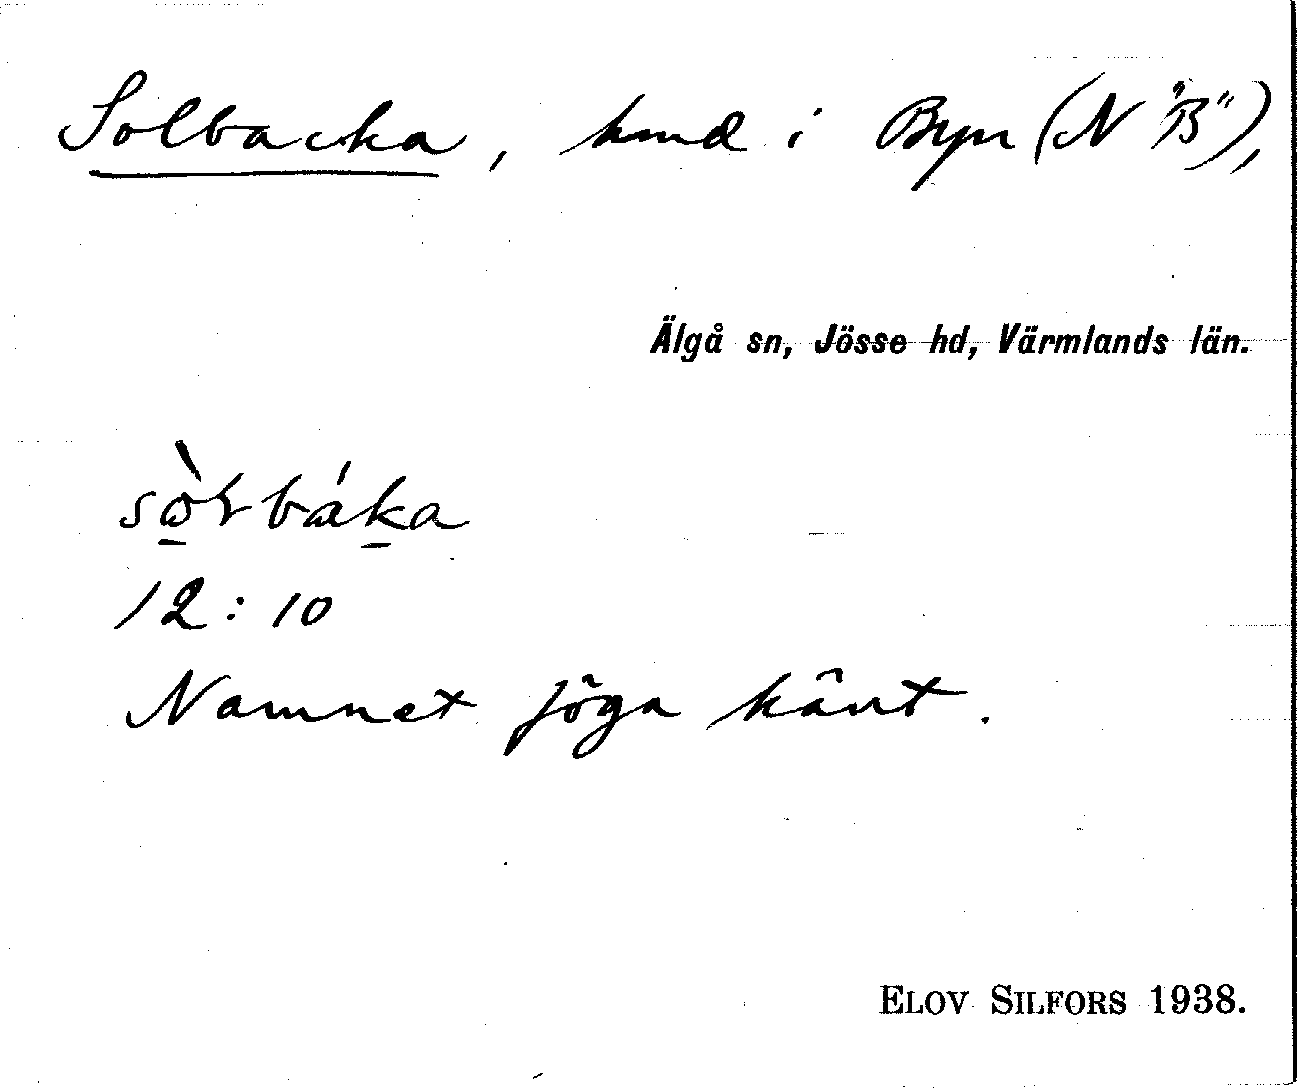 Solbacka, hmd i Byn (N "B"),
Älgå sn, Jösse hd, Värmlands län.
sòɽbáka
12:10
Namnet föga känt.
ELOV SILFORS 1938.